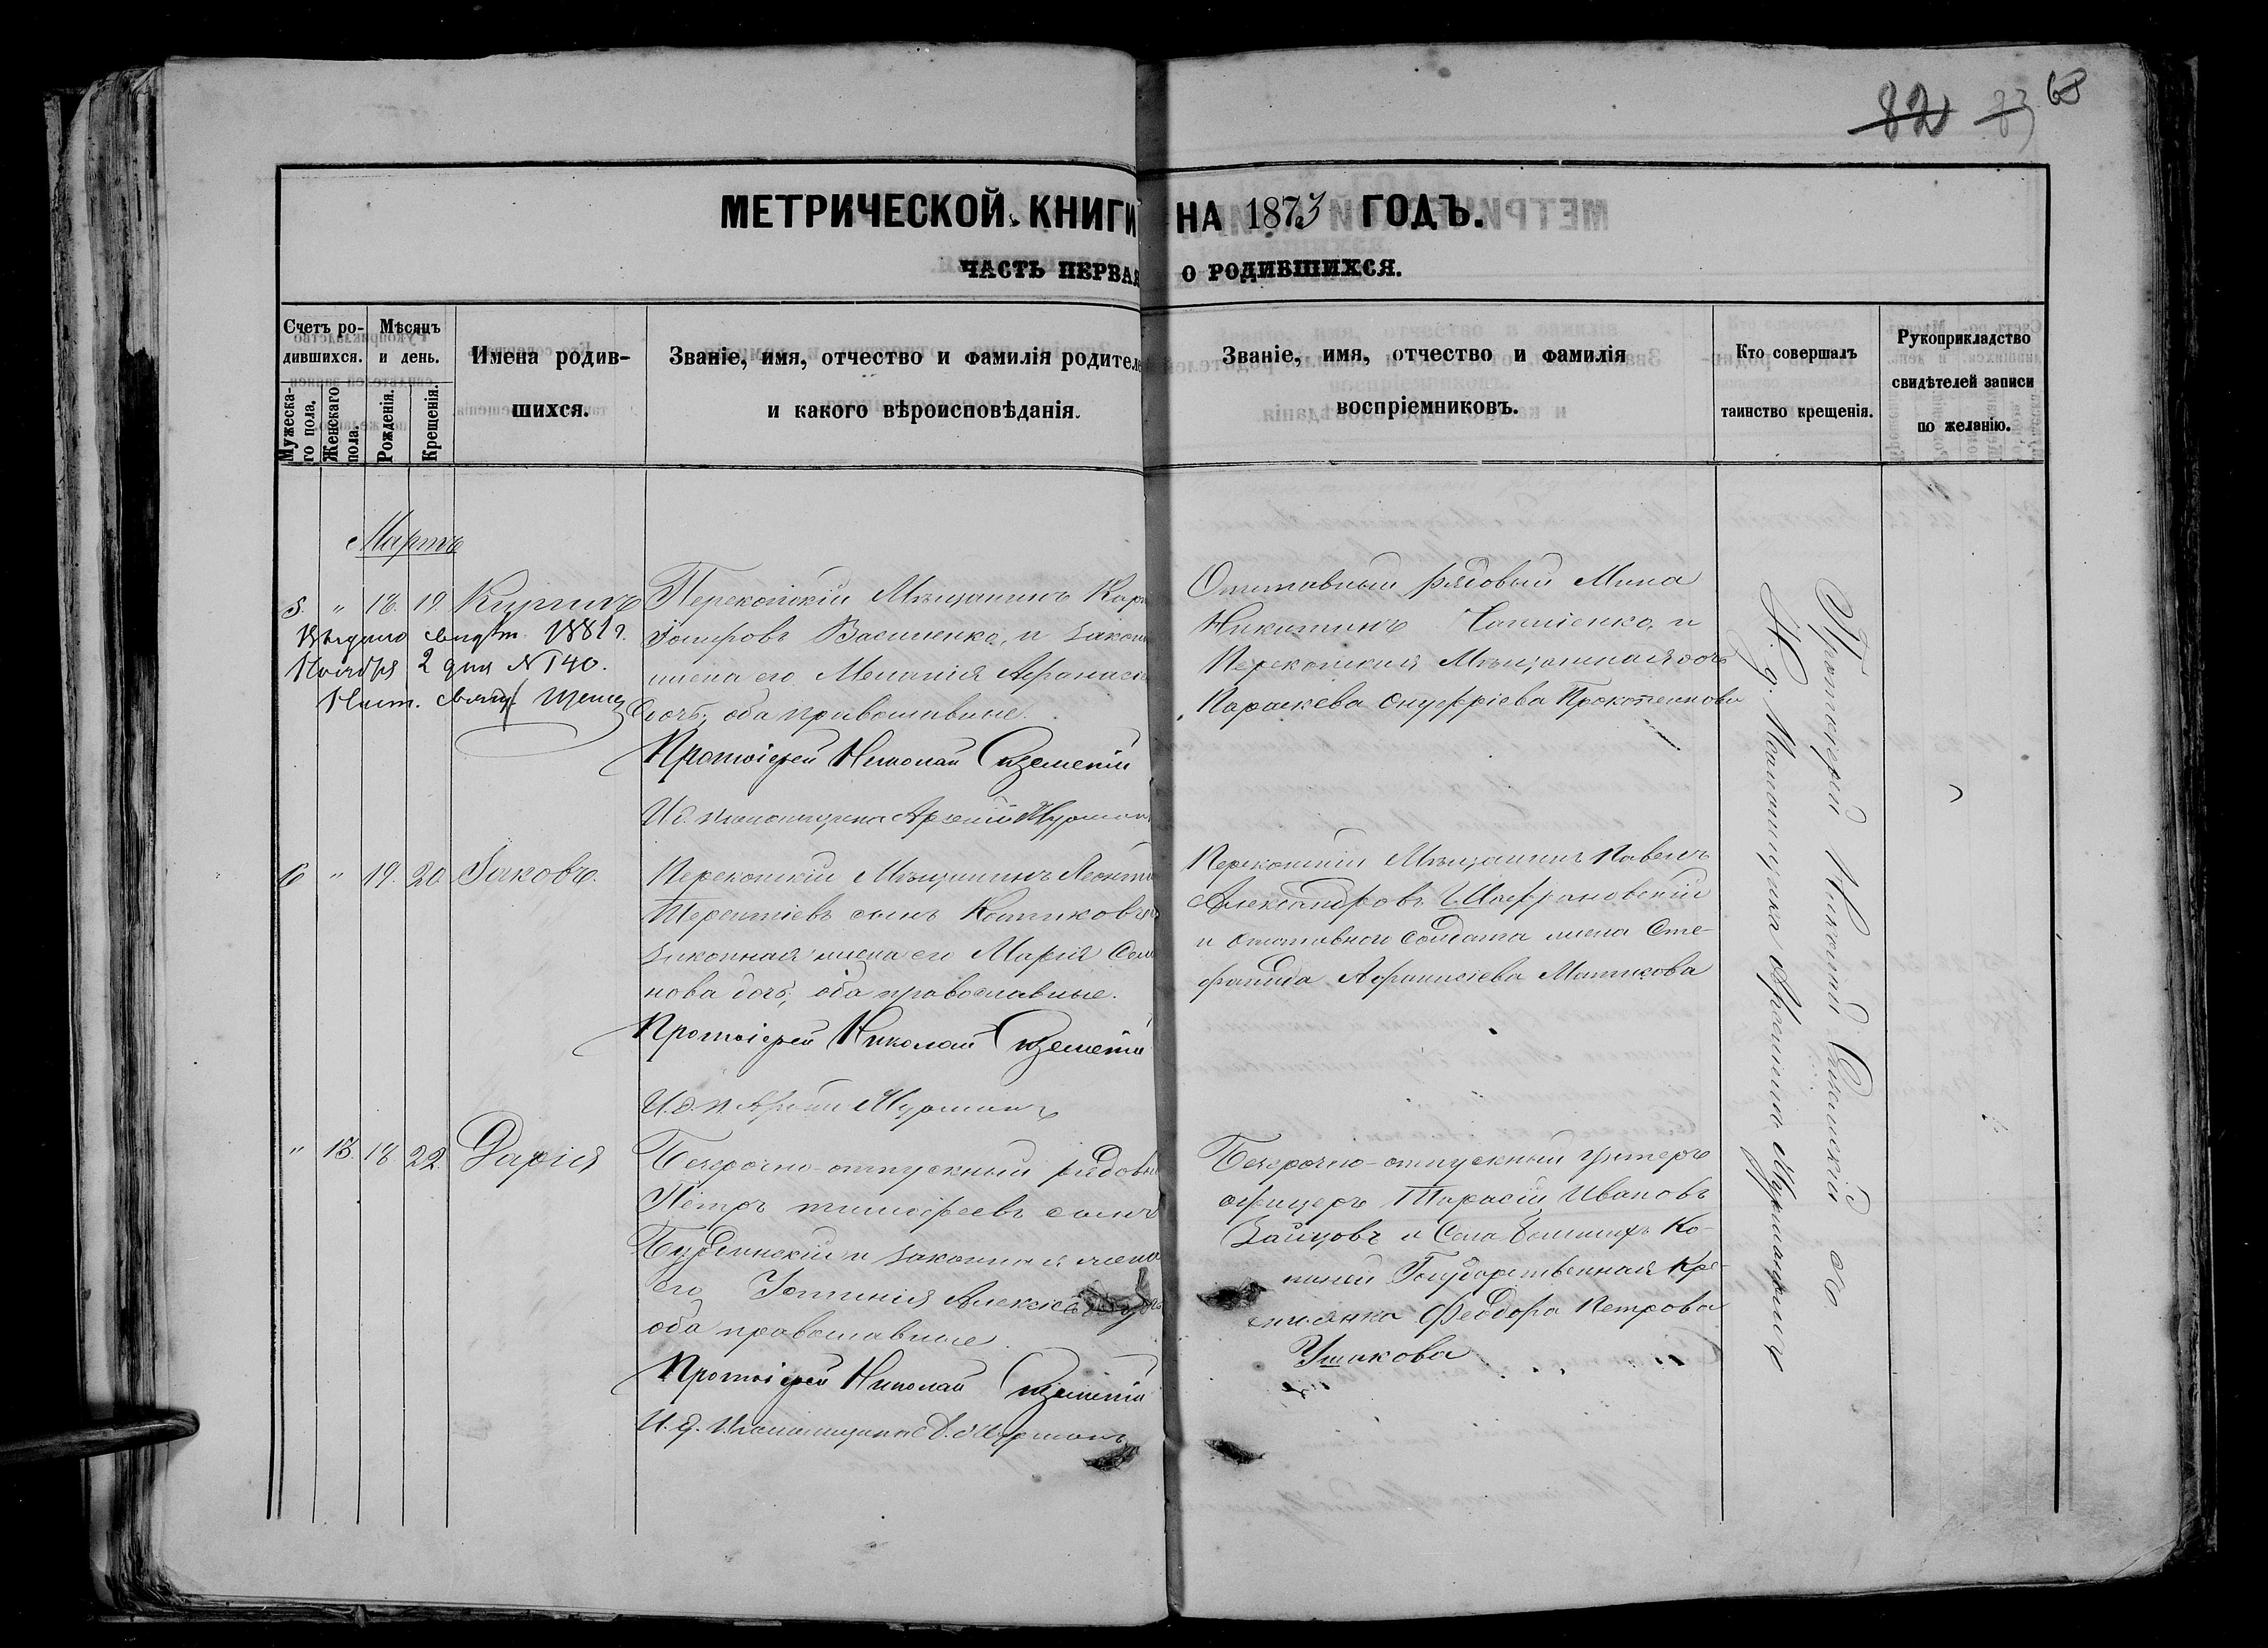 82 83 68
МЕТРИЧЕСКОЙ КНИГИ НА 1873 ГОДЪ.
ЧАСТЬ ПЕРВАЯ О РОДИВШИХСЯ.
Счетъ ро-
дившихся.
Мужеска-
го пола.
Женскаго
пола.
Мѣсяцъ
и день.
Рожденія.
Крещенія.
Имена родив-
шихся.
Званіе, имя, отчество и фамилія родителе
и какого вѣроисповѣданія.
Званіе, имя, отчество и фамилія
воспріемниковъ.
Кто совершалъ
таинство крещенія.
Рукоприкладство
свидѣтелей записи
по желанію.
Мартъ
5. " 18. 19. Кириллъ
Выдано свидѣт. 1881 г.
Ноября 2 дня N 140.
Наст. свящ.
Перекопскій Мѣщанинъ Кар
Василенко, и закон
жена его Меланія Афанасіе
дочь, оба православные.
Протоіерей Николай
И. д. псаломщика Арсеній
Отставный рядовый Мина
Никитинъ и
Перекопская Мѣщанская дочь
Параскева Онуфріева Прокопенкова
6 " 19. 20. Іаковъ.
Перекопскій Мѣщанинъ Леонтій
Терентіевъ сынъ
законная жена его Марія Сем
нова дочь, оба православные.
Протоіерей Николай
И. д. п. Арсеній
Перекопскій Мѣщанинъ Павелъ
Александровъ Шафрановскій
и отставного солдата жена Сте-
фанида Афанасіева
" 13. 18. 22. Дарія
Безсрочно-отпускный рядовы
Пётръ Тимофеевъ сынъ
и законная жена
его Іустинія Алексіева
оба православные.
Протоіерей Николай
И. д. Псаломщика А.
Безсрочно-отпускный унтеръ
офицеръ Тарасій Ивановъ
Зайцовъ и Села Большихъ Ко-
паней Государственная Кре-
стьянка Феодора Петрова
Ушакова
Протоіерей Николай
И. д. Псаломщика Арсеній